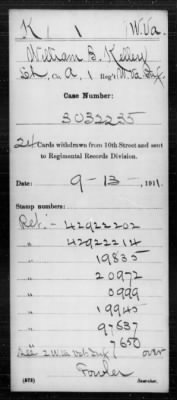 K 1 W.Va.
William B. Kelley
Co. A, 1 Reg't W.Va. Inf.
Case Number:
3032235
24 Cards withdrawn from 10th Street and sent
to Regimental Records Division.
Date: 9-13-, 1911.
Stamp numbers:
Ret:- 42922202
" 42922214
" 19835
" 20972
" 0999
" 19945
" 97537
" 7650
See 2 W.Va. Vet. Inf. over
Fowler
(573) Searcher.